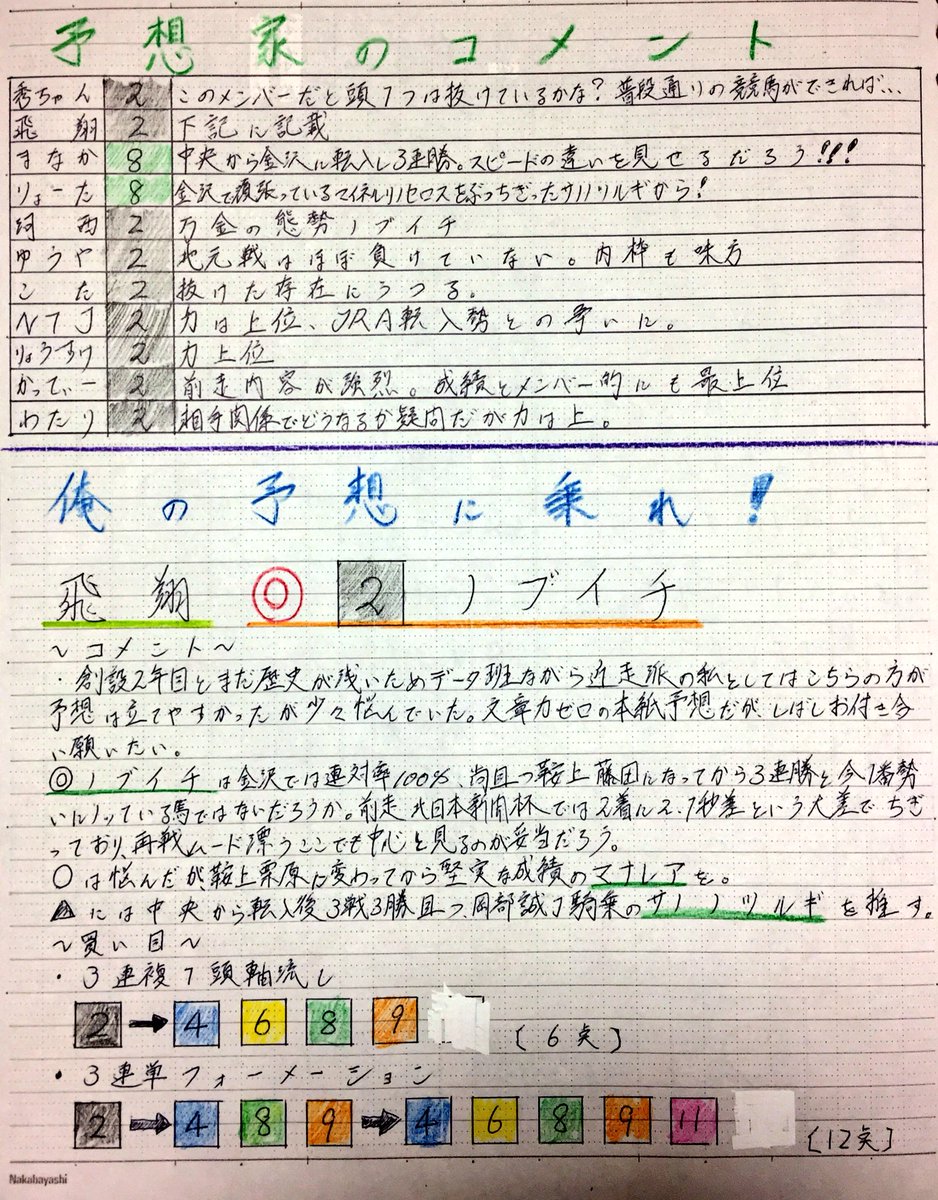 予想家のコメント
秀ちゃん 2 このメンバーだと頭1つは抜けているかな?普段通りの競馬ができれば…
飛翔 2 下記に記載
まなか 8 中央から金沢に転入し3連勝。スピードの違いを見せるだろう!!!
りょーた 8 金沢で頑張っているマイネルリノセロスをぶっちぎったサノノツルギから!
西 2 万全の態勢ノブイチ
ゆうや 2 地元戦はほぼ負けていない。内枠も味方
こた 2 抜けた存在にうつる。
NTJ 2 力は上位、JRA転入勢との争いに。
りょうすけ 2 力上位
かってぃー 2 前走内容が強烈。成績とメンバー的にも最上位
わたり 2 相手関係でどうなるか疑問だが力は上。
俺の予想に乗れ!
飛翔 ◎ 2 ノブイチ
~コメント~
・創設2年目とまだ歴史が浅いためデータ班ながら近走派の私としてはこちらの方が
予想は立てやすかったが少々悩んでいた。文章力ゼロの本紙予想だが、しばしお付き合
い願いたい。
◎ノブイチは金沢では連対率100%、尚且つ鞍上藤田になってから3連勝と今1番勢
いにノッている馬ではないだろうか。前走北日本新聞杯では2着に2.1秒差という大差でちぎ
っており、再戦ムード漂うここでも中心と見るのが妥当だろう。
○は悩んだが、鞍上栗原に変わってから堅実な成績のマナレアを。
▲には中央から転入後3戦3勝且つ、岡部誠J騎乗のサノノツルギを推す。
~買い目~
・3連複1頭軸流し
2→4 6 8 9 [6点]
・3連単フォーメーション
2→4 8 9→4 6 8 9 11 [12点]
Nakabayashi